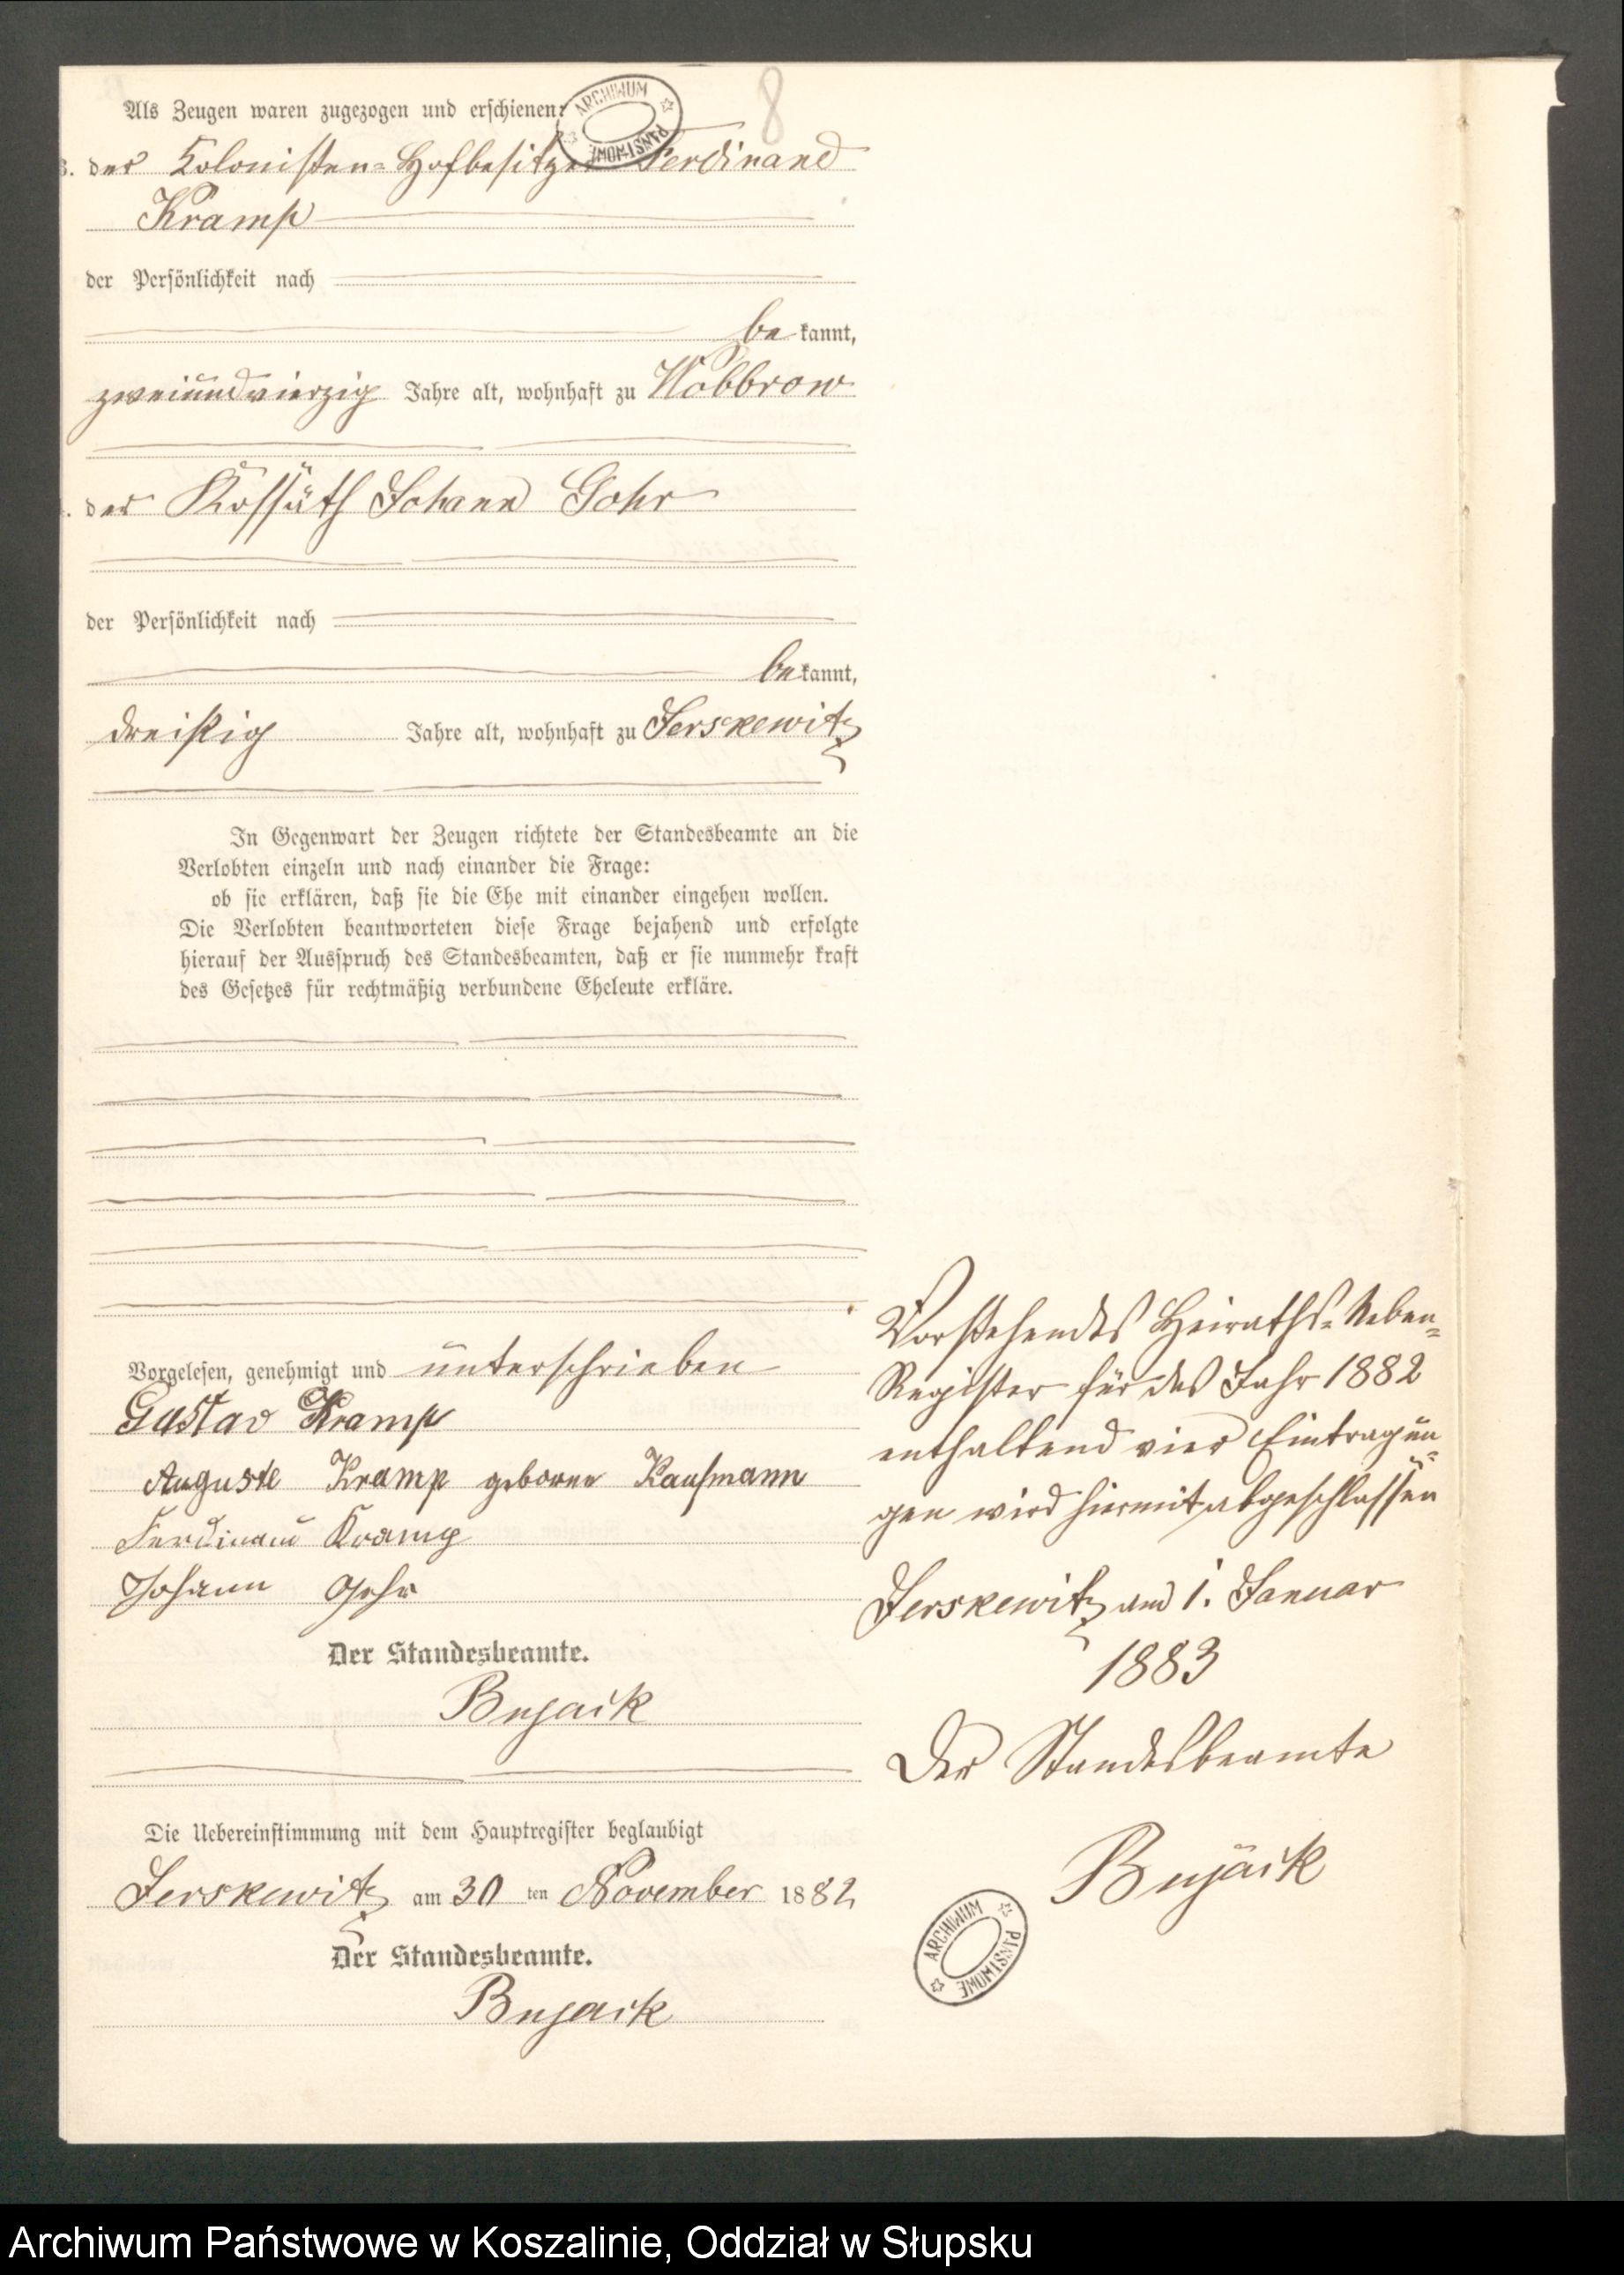 8
Als Zeugen waren zugezogen und erschienen:
ARCHIWUM PAŃSTWOWE
3. der Kolonisten-Hofbesitzer Ferdinand
Kramp
der Persönlichkeit nach
be kannt,
zweiundvierzig Jahre alt, wohnhaft zu Wobbrow
der Kossäth Johann Gohr
der Persönlichkeit nach
be kannt,
dreißig Jahre alt, wohnhaft zu Jerskewitz
In Gegenwart der Zeugen richtete der Standesbeamte an die
Verlobten einzeln und nach einander die Frage:
ob sie erklären, daß sie die Ehe mit einander eingehen wollen.
Die Verlobten beantworteten diese Frage bejahend und erfolgte
hierauf der Ausspruch des Standesbeamten, daß er sie nunmehr kraft
des Gesetzes für rechtmäßig verbundene Eheleute erkläre.
Vorgelesen, genehmigt und unterschrieben
Gustav Kramp
Auguste Kramp geborne Kaufmann
Ferdinand Kramp
Johann Gohr
Der Standesbeamte.
Bujack
Die Uebereinstimmung mit dem Hauptregister beglaubigt
Jerskewitz am 30 ten November 1882
Der Standesbeamte.
Bujack
Vorstehendes Heiraths-Neben-
Register für das Jahr 1882
enthaltend vier Eintragun-
gen wird hiermit abgeschlossen
Jerskewitz am 1. Januar
1883
Der Standesbeamte
Bujack
ARCHIWUM PAŃSTWOWE
Archiwum Państwowe w Koszalinie, Oddział w Słupsku